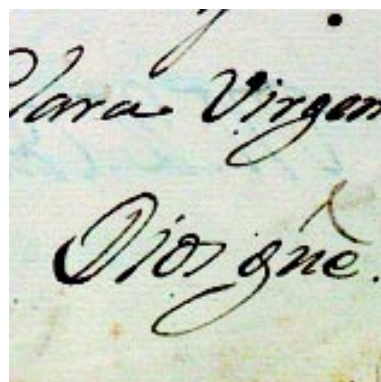 Clara Virgen
Dios guè.